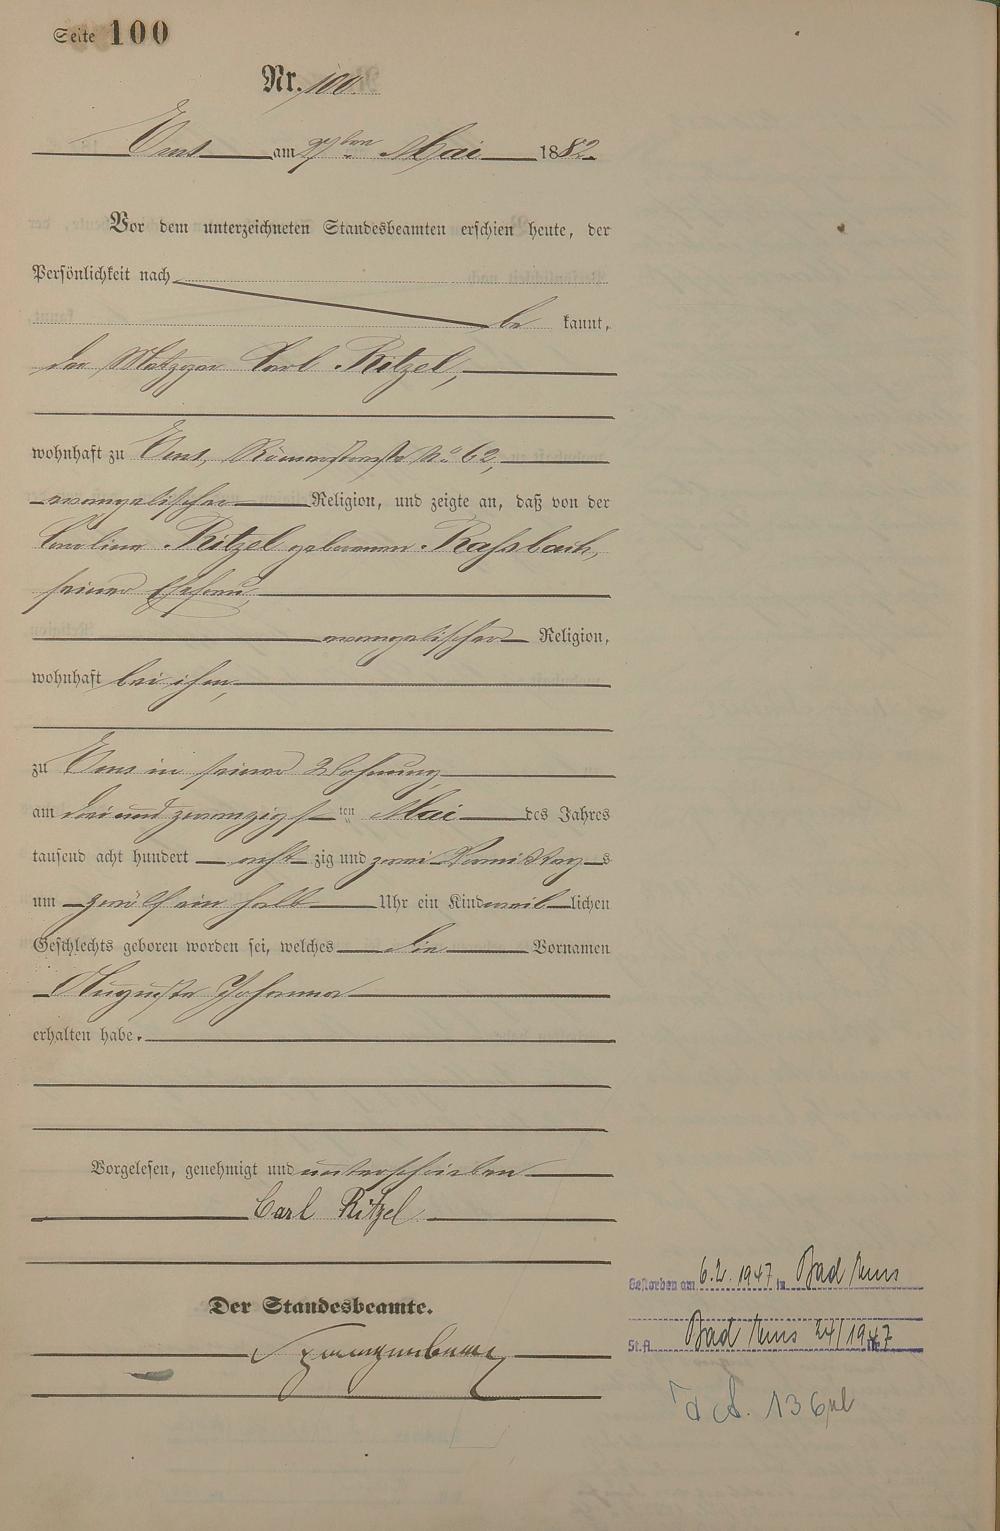 Seite 100
Nr. 100.
Ems am 27ten Mai 1882.
Vor dem unterzeichneten Standesbeamten erschien heute, der
Persönlichkeit nach
be kannt,
der Metzger Carl Ritzel,
wohnhaft zu Ems, Römerstraße No 62,
evangelischer Religion, und zeigte an, daß von der
Caroline Ritzel geborenen Raßbach,
seiner Ehefrau,
evangelischer Religion,
wohnhaft bei ihm,
zu Ems in seiner Wohnung
am drei und zwanzigsten Mai des Jahres
tausend acht hundert acht zig und zwei Vormittags
um zwölf ein halb Uhr ein Kind weiblichen
Geschlechts geboren worden sei, welches die Vornamen
Auguste Johanna
erhalten habe.
Vorgelesen, genehmigt und unterschrieben
Carl Ritzel
Der Standesbeamte.
Gestorben am 6.2.1947 in Bad Ems
St.A. Bad Ems 24/1947
136